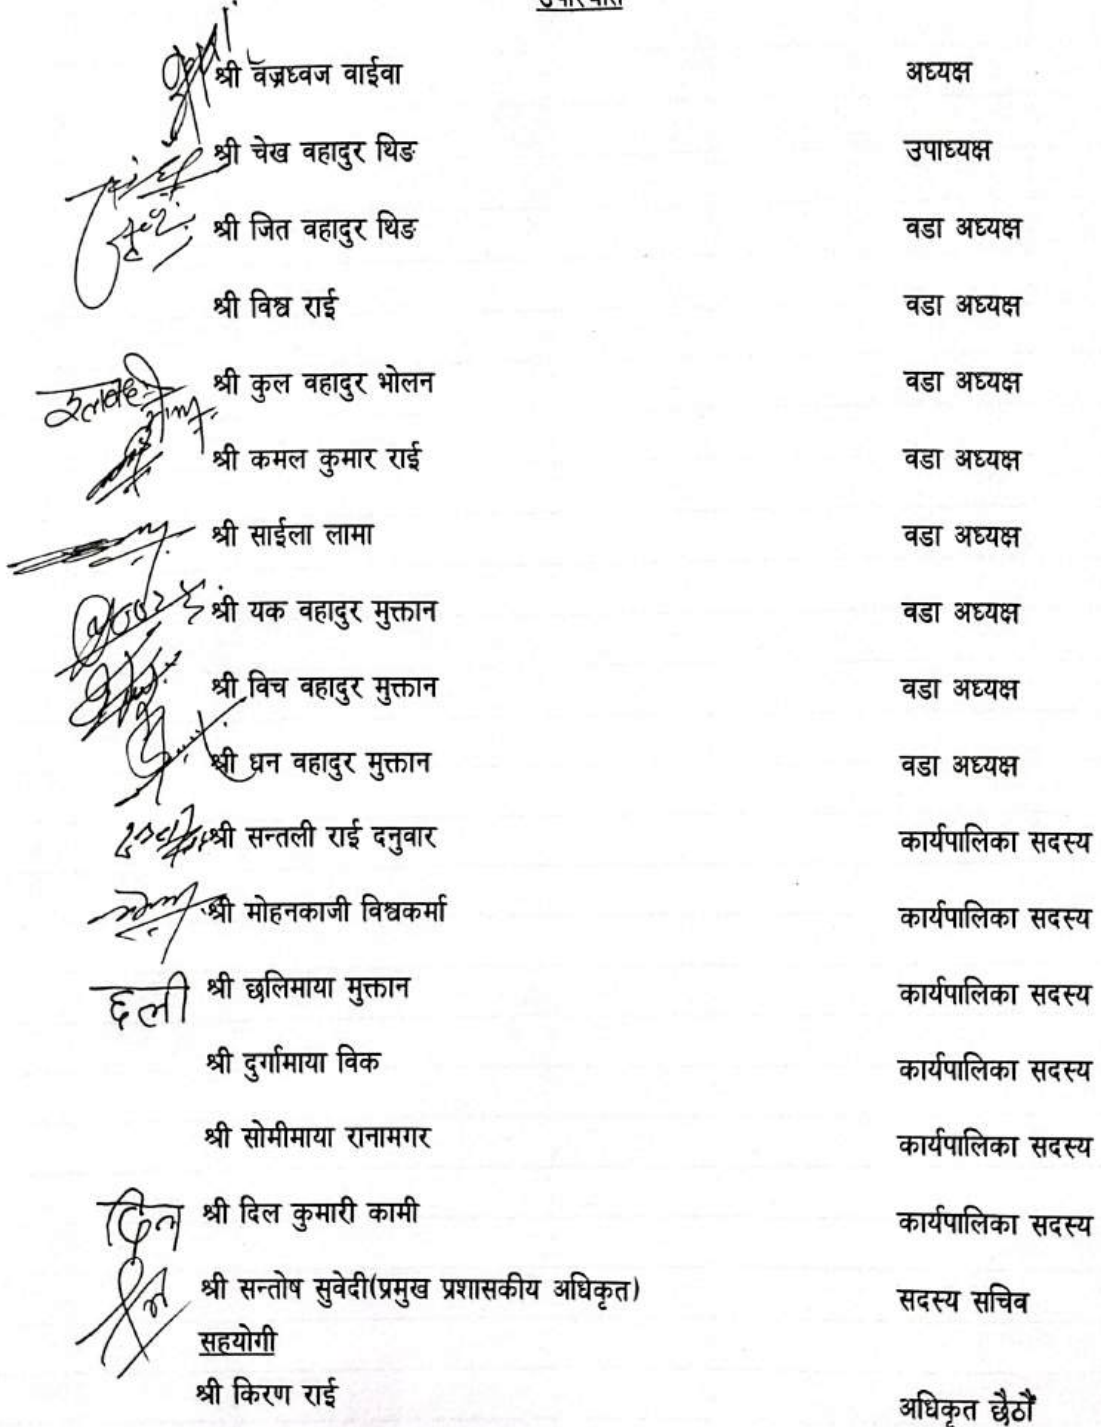 उपस्थिति
श्री वज्रध्वज वाईवा अध्यक्ष
श्री चेख वहादुर थिङ उपाध्यक्ष
श्री जित वहादुर थिङ वडा अध्यक्ष
श्री विश्व राई वडा अध्यक्ष
श्री कुल वहादुर भोलन वडा अध्यक्ष
श्री कमल कुमार राई वडा अध्यक्ष
श्री साईला लामा वडा अध्यक्ष
श्री यक वहादुर मुक्तान वडा अध्यक्ष
श्री विच वहादुर मुक्तान वडा अध्यक्ष
श्री धन वहादुर मुक्तान वडा अध्यक्ष
श्री सन्तली राई दनुवार कार्यपालिका सदस्य
श्री मोहनकाजी विश्वकर्मा कार्यपालिका सदस्य
छली श्री छलिमाया मुक्तान कार्यपालिका सदस्य
श्री दुर्गामाया विक कार्यपालिका सदस्य
श्री सोमीमाया रानामगर कार्यपालिका सदस्य
दिल श्री दिल कुमारी कामी कार्यपालिका सदस्य
श्री सन्तोष सुवेदी(प्रमुख प्रशासकीय अधिकृत) सदस्य सचिव
सहयोगी
श्री किरण राई अधिकृत छैठौं